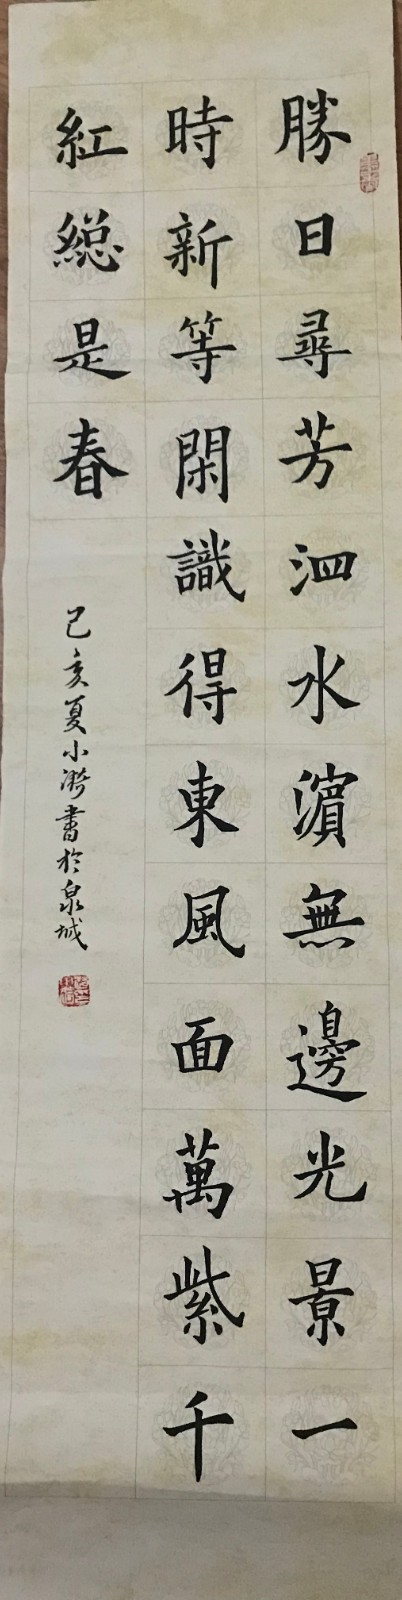 勝日尋芳泗水濵無邊光景一
時新等閑識得東風面萬紫千
紅縂是春
己亥夏小漪書於泉城